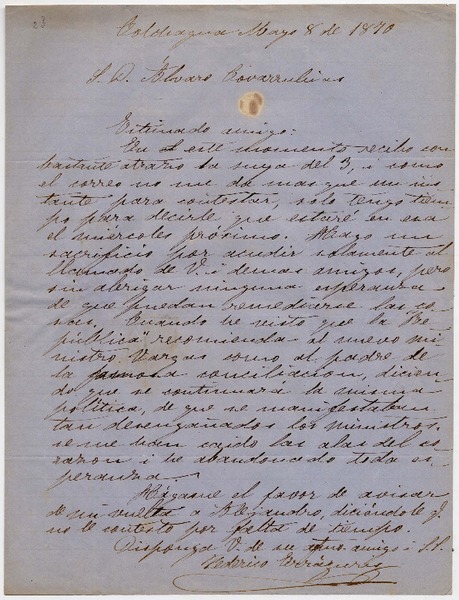 23
Colchagua Mayo 8 de 1870
S. D. Álvaro Covarrubias
Estimado amigo:
En este momento recibo con
bastante atrazo la suya del 3, i como
el correo no me da mas que un ins-
tante para contestar, solo tengo tiem-
po para decirle que estaré en esa
el miércoles próximo. Hago un
sacrificio por acudir solamente al
llamado de V. i demas amigos, pero
sin abrigar ninguna esperanza
de que puedan remediarse las co-
sas. Cuando he visto que la Re-
pública recomienda al nuevo mi-
nistro Vargas como al padre de
la famosa conciliacion, dicien-
do que se continuara la misma
política, de que se manifestaban
tan desengañados los ministros,
se me han caido las alas del co-
razon i he abandonado toda es-
peranza.
Hágame el favor de avisar
de mi vuelta a Alejandro, diciéndole q.
no le contesto por falta de tiempo.
Disponga V. de su atno. amigo i S.S.
Federico Errázuriz